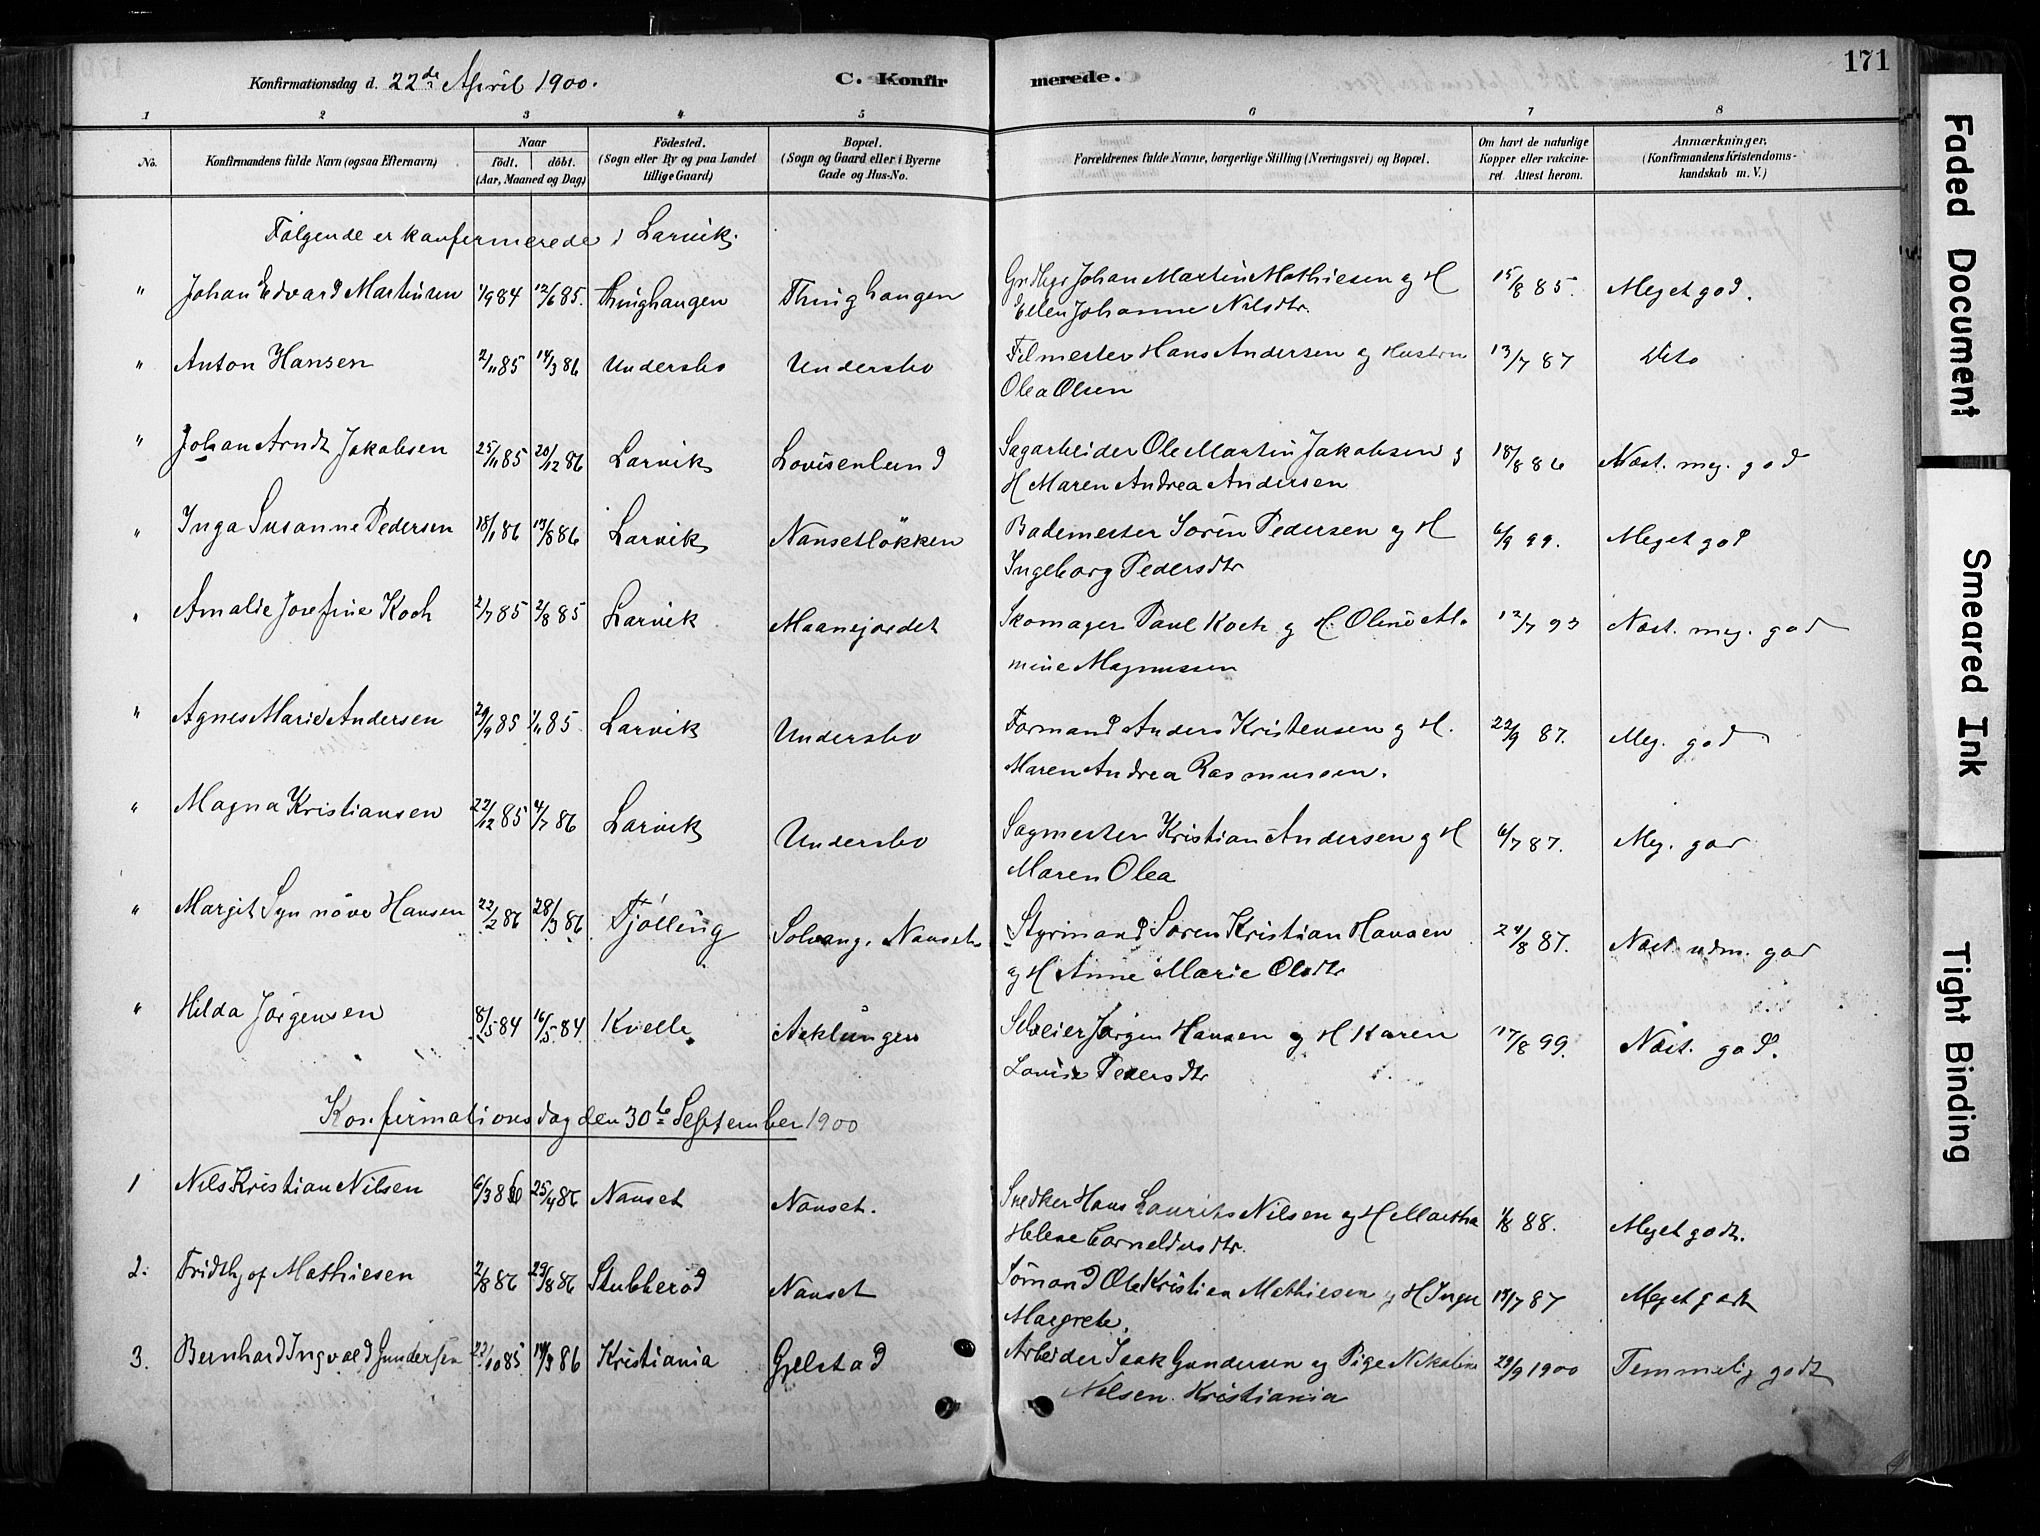 171
Konfirmationsdag d. 22de April 1900.
C. Konfir
merede.
1 2 3 4 5 6 7 8
No.
Konfirmandens fulde Navn (ogsaa Efternavn)
Naar
födt. döbt.
(Aar, Maaned og Dag)
Födested.
(Sogn eller By og paa Landet
tillige Gaard)
Bopæl.
(Sogn og Gaard eller i Byerne
Gade og Hus-No.
Forældrenes fulde Navne, borgerlige Stilling (Næringsvei) og Bopæl.
Om havt de naturlige
Kopper eller vakcine-
ret. Attest herom.
Anmærkninger.
(Konfirmandens Kristendoms-
kundskab m. V.)
Følgende er konfirmerede i Larvik.
" Johan Edvard Martinsen 1/9 84 12/6 85. Thinghaugen Thinghaugen Johan Martin Mathiesen og H 15/8 85. Meget god.
Ellen Johanne Nilsdtr.
" Anton Hansen 2/11 85 14/3 86 Undersbo Undersbo Filmester Hans Andersen og Hustru 13/7 87 Dito
Olea Olsen
" Johan Arndt Jakobsen 25/11 85 20/12 86 Larvik Lovisenlund Sagarbeider Ole Martin Jakobsen og 18/8 86 Næst. meg. god
H Maren Andrea Andersen
" Inga Susanne Pedersen 18/1 86 13/8 86 Larvik Nansetlökken Bademester Sörin Pedersen og H 6/9 99. Meget god
Ingeborg Pedersdtr
" Amalie Josefine Koch 2/7 85 2/8 85 Larvik Maanejordet Skomager Paul Koch og H. Oline Al- 12/7 93 Næst. meg. god
mine Magnussen
" Agnes Marie Andersen 29/9 85 1/11 85 Larvik Undersbo Formand Anders Kristensen og H. 22/9 87. Meg. god
Maren Andrea Rasmussen.
" Magna Kristiansen 22/12 85 4/7 86 Larvik Undersbo Sagmester Kristian Andersen og H 6/7 87. Meg. god
Maren Olea
" Margit Synnöve Hansen 22/2 86 28/3 86 Tjølling Solvang. Nanset. Styrmand Sören Kristian Hansen 24/8 87. Næst udm. god
og H Anne Marie Olsdtr
" Hilda Jørgensen 8/5 84 16/5 84 Kvelle Asklungen Selveier Jørgen Hansen og H Karen 17/8 99. Næst. god.
Lovise Pedersdtr
Konfirmationsdag den 30te September 1900
1 Nils Kristian Nilsen 6/3 86 25/4 86 Nanset Nanset. Snedker Hans Laurits Nilsen og H Martha 1/8 88. Meget godt.
Helene Corneliusdtr.
2. Fridthjof Mathiesen 2/8 86 29/8 86 Stubberød Nanset Sömand Ole Kristian Mathiesen og H Inger 18/7 87 Meget godt
Margrete.
3. Bernhard Ingvald Gundersen 22/10 85 14/3 86 Kristiania Gjelstad Arbeider Isak Gundersen og Pige Nikoline 29/9 1900 Temmelig godt
Nilsen Kristiania
Faded Document
Smeared Ink
Tight Binding